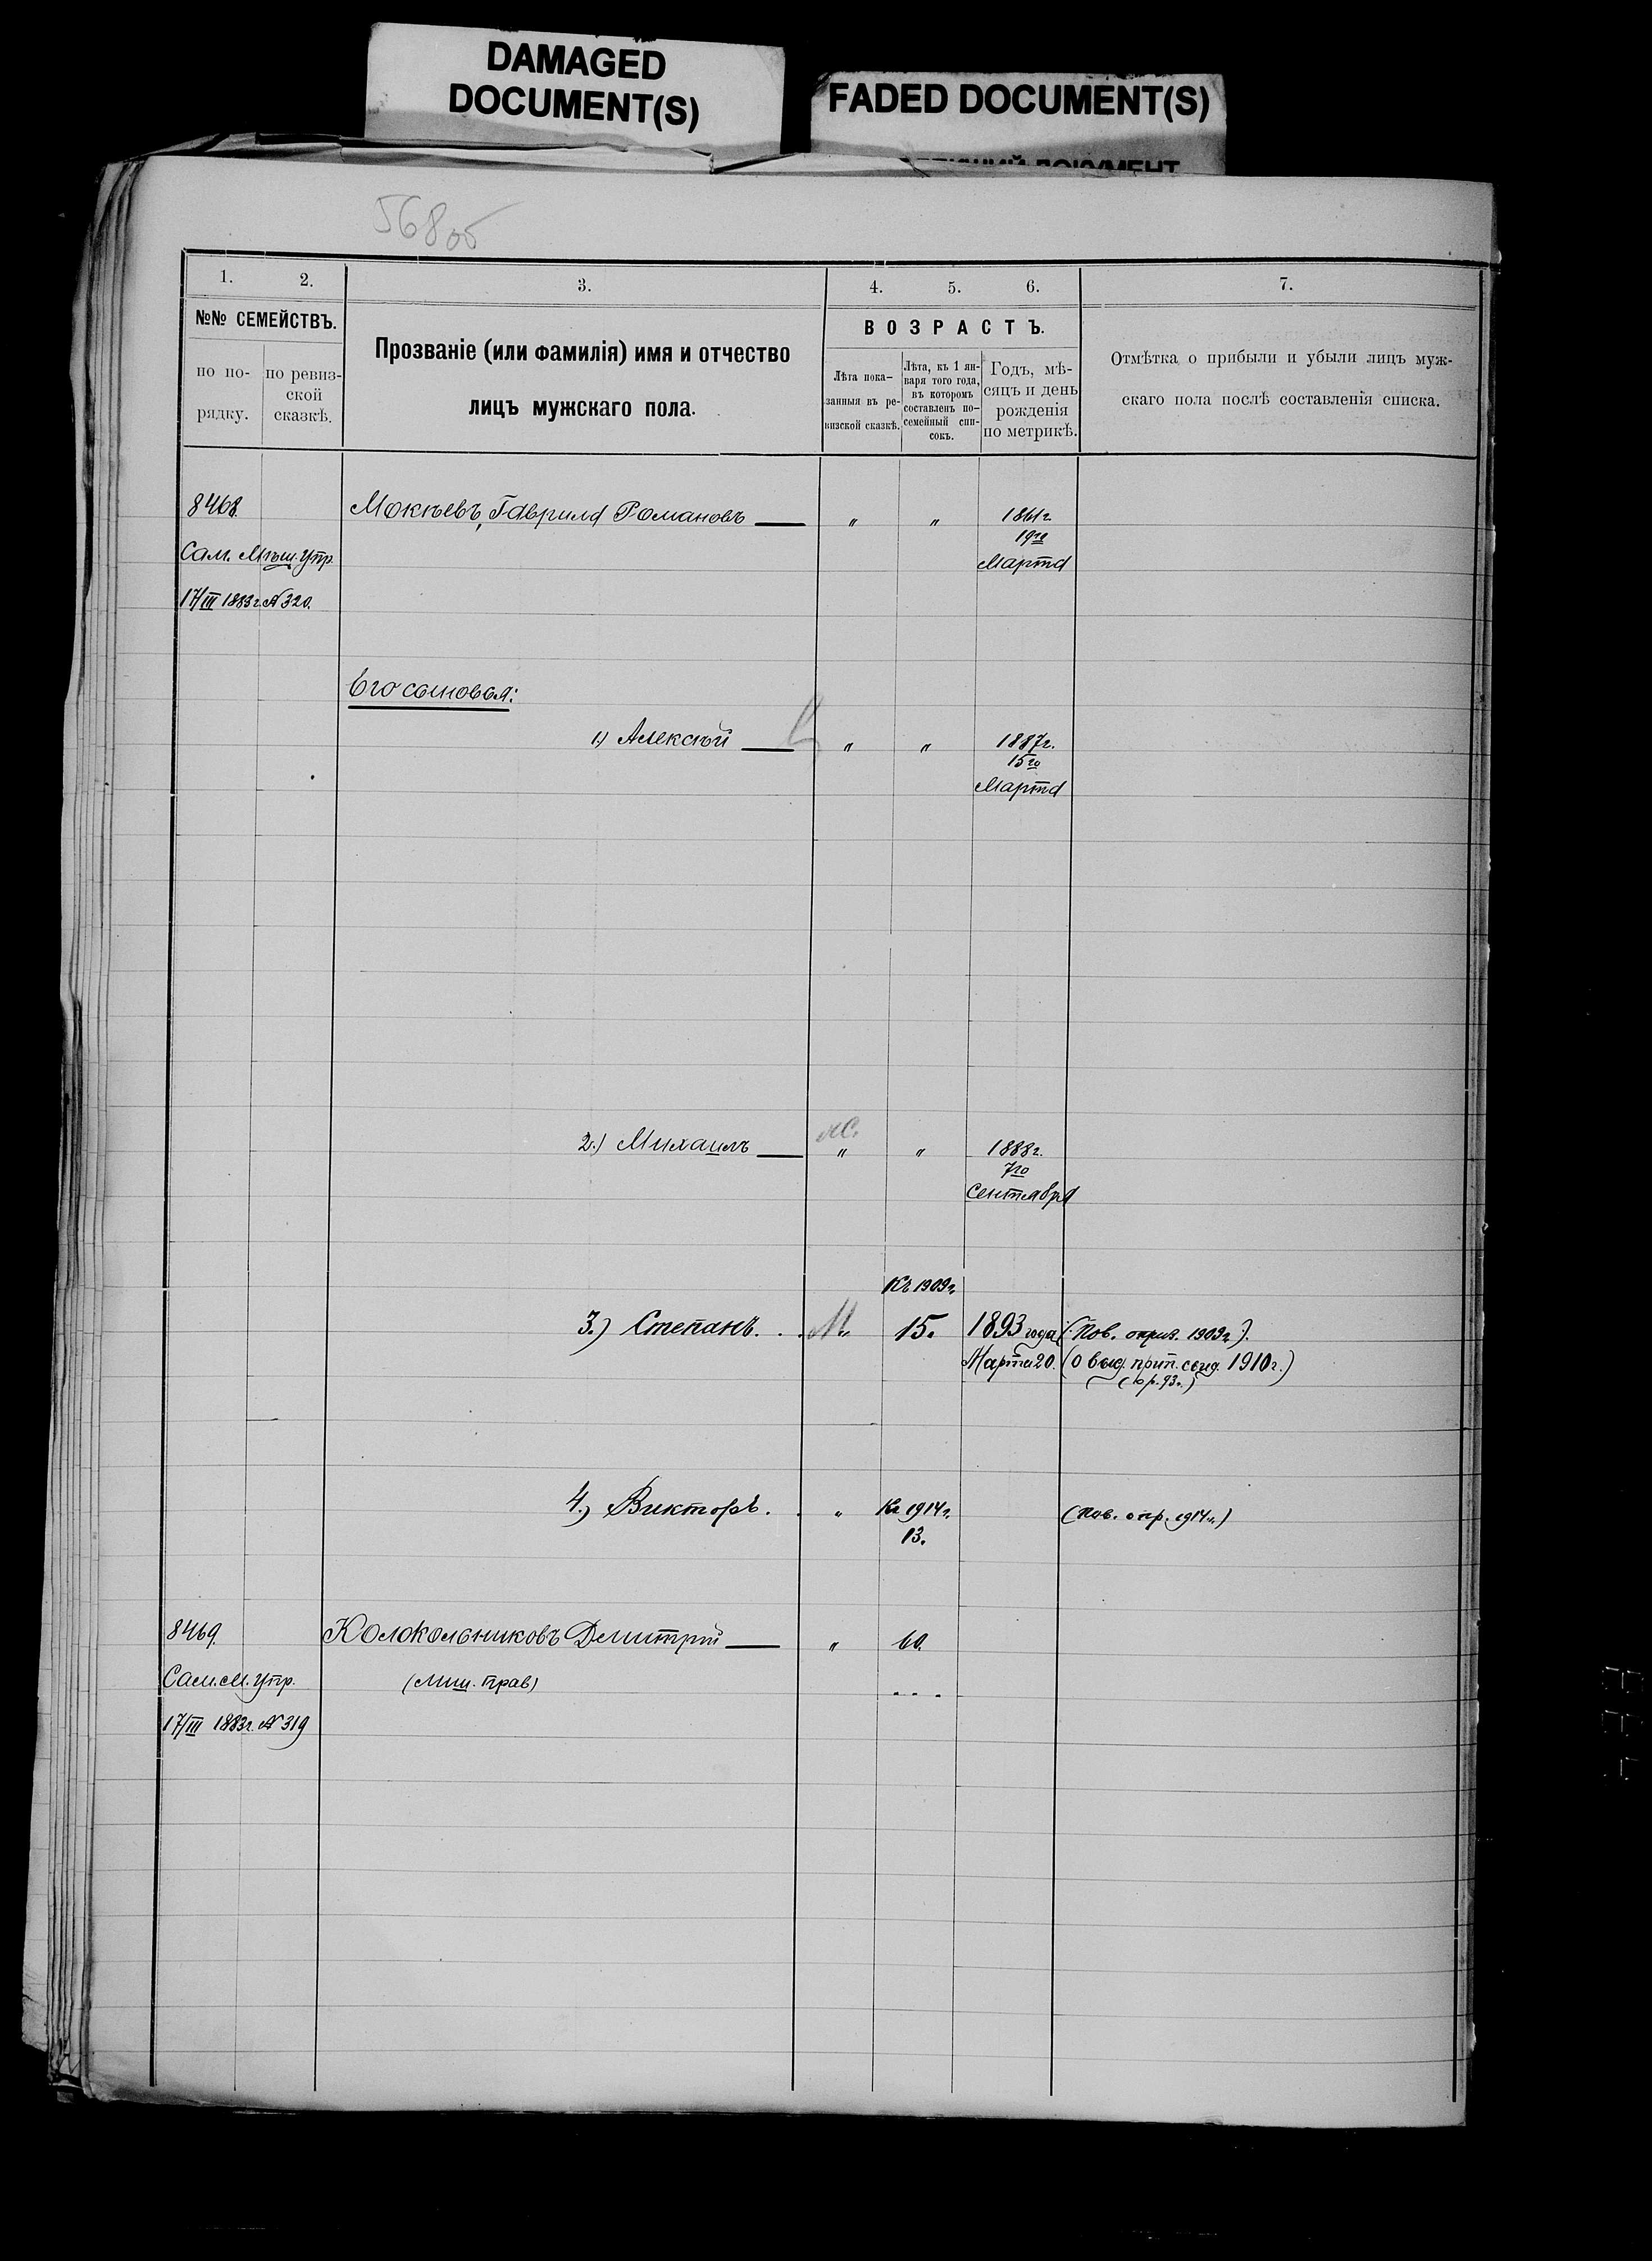 DAMAGED
DOCUMENT(S)
FADED DOCUMENT(S)
568 об
1. 2. 3. 4. 5. 6. 7.
№№ СЕМЕЙСТВЪ.
по по-
рядку.
по ревиз-
ской
сказкѣ.
Прозваніе (или фамилія) имя и отчество
лицъ мужскаго пола.
ВОЗРАСТЪ.
Лѣта пока-
занныя въ ре-
визской сказкѣ.
Лѣта, къ 1 ян-
варя того года,
въ которомъ
составленъ по-
семейный спи-
сокъ.
Годъ, мѣ-
сяцъ и день
рожденія
по метрикѣ.
Отмѣтка о прибыли и убыли лицъ муж-
скаго пола послѣ составленія списка.
8468. Мокѣевъ, Гаврила Романовъ — " " 1861г.
19го
Сам. Мѣщ. Упр. Марта
17/III 1883г. № 320.
Его сыновья:
1) Алексѣй — " " 1887г.
15го
Марта
М.
2.) Михаилъ — " " 1888г.
7го
Сентября
Къ 1909г.
3.) Степанъ. . . М. 15. 1893 года (Пов. 1909г.).
Марта 20. (о выд. прип. свид. 1910г.)
4.) Викторъ. . " Къ 1914г. (Пов. опр. 1914г.)
13.
8469. Колокольниковъ Дмитрій — " 60.
Сам. М. Упр. (Мѣщ. прав)
17/III 1883г. № 319